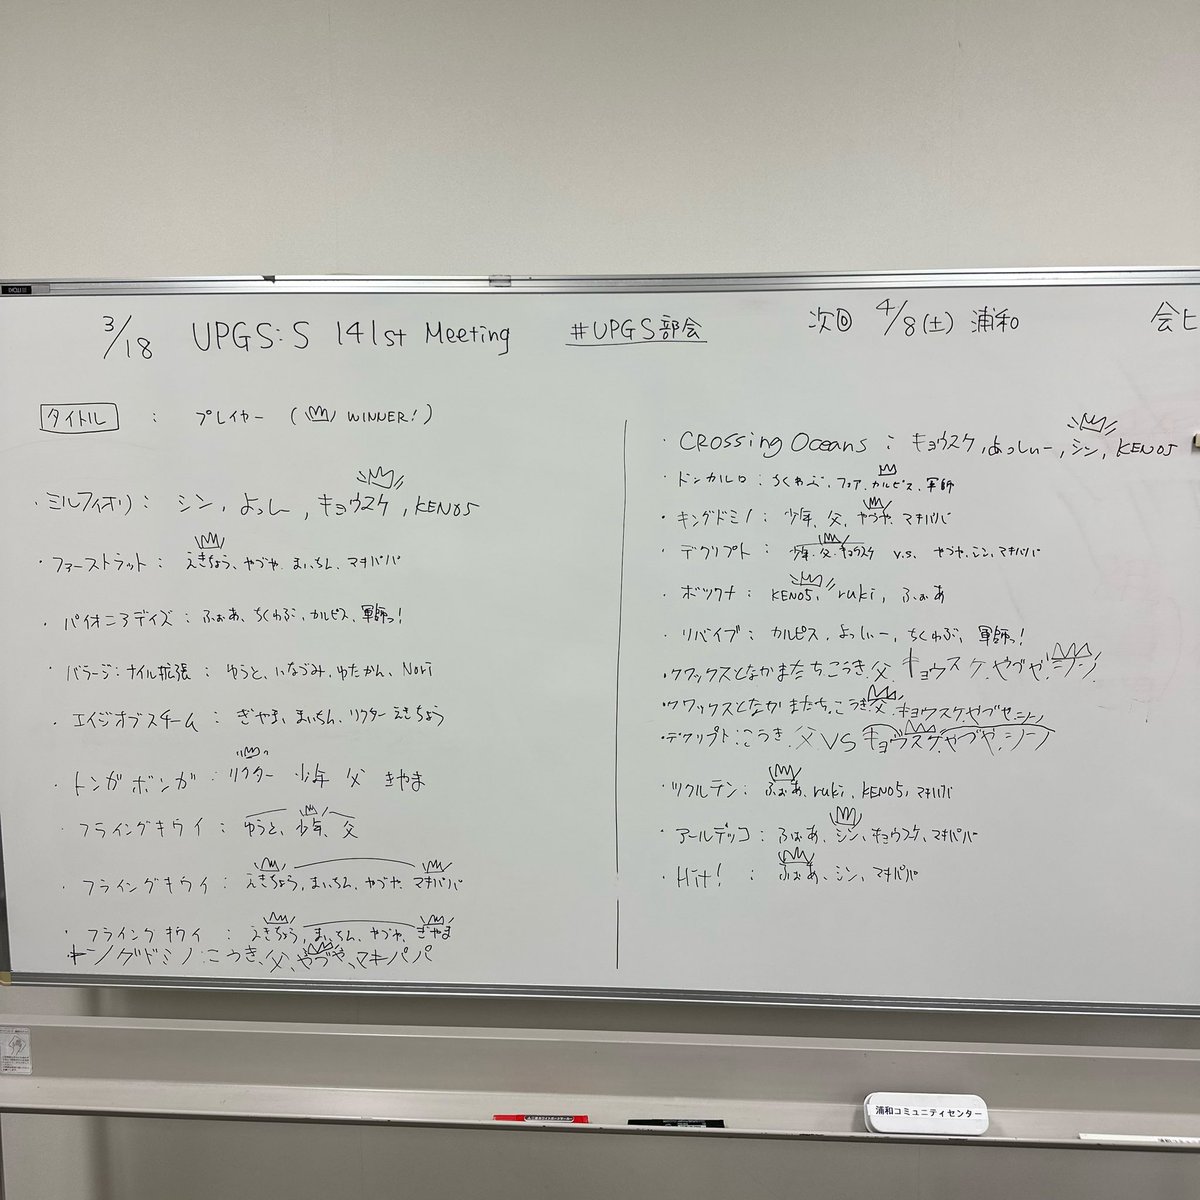 3/18 UPGS:S 141st Meeting #UPGS部会 次回 4/8(土) 浦和
タイトル : プレイヤー ( WINNER!)
・ミルフィオリ: シン, よっしー, キョウスケ, KENO5
・ファーストラット: えきちょう、やづや、まいちん、マキパパ
・パイオニアデイズ: ふぉあ、ちくわぶ、カルピス、軍師っ!
・バラージ:ナイル拡張 : ゆうと、いなづみ、ゆたかん、Nori
・エイジオブスチーム : ぎやま、まいちん、リクター えきちょう
・トンガボンガ : リクター 少年 父 きやま
・フライングキウイ : ゆうと、少年、父
・フライングキウイ : えきちょう, まいちん、やづや、マキパパ
・フライングキウイ : えきちょう, まいちん、やづや、ぎやま
・キングドミノ:こうき、父、やづや、マキパパ
・CRossing Oceans : キョウスケ, よっしぃー, シン, KENO5
・ドンカルロ : ちくわぶ、フォア、カルピス、軍師
・キングドミノ : 少年、父、やづや、マキパパ
・デクリプト : 少年、父、キョウスケ v.s. やづや、シン、マキパパ
・ボツワナ : KENO5, ruki, ふぉあ
・リバイブ : カルピス, よっしぃー、ちくわぶ、軍師っ!
・クワックスとなかまたち:こうき、父、キョウスケ、やづや、シン
・クワックスとなかまたち:こうき、父、キョウスケ、やづや、シン
・デクリプト:こうき、父 VS キョウスケ、やづや、シン
・ツクルテン : ふぉあ、ruki、KENO5, マキパパ
・アールデッコ : ふぉあ、シン、キョウスケ、マキパパ
・Hit! : ふぉあ、シン、マキパパ
浦和コミュニティセンター